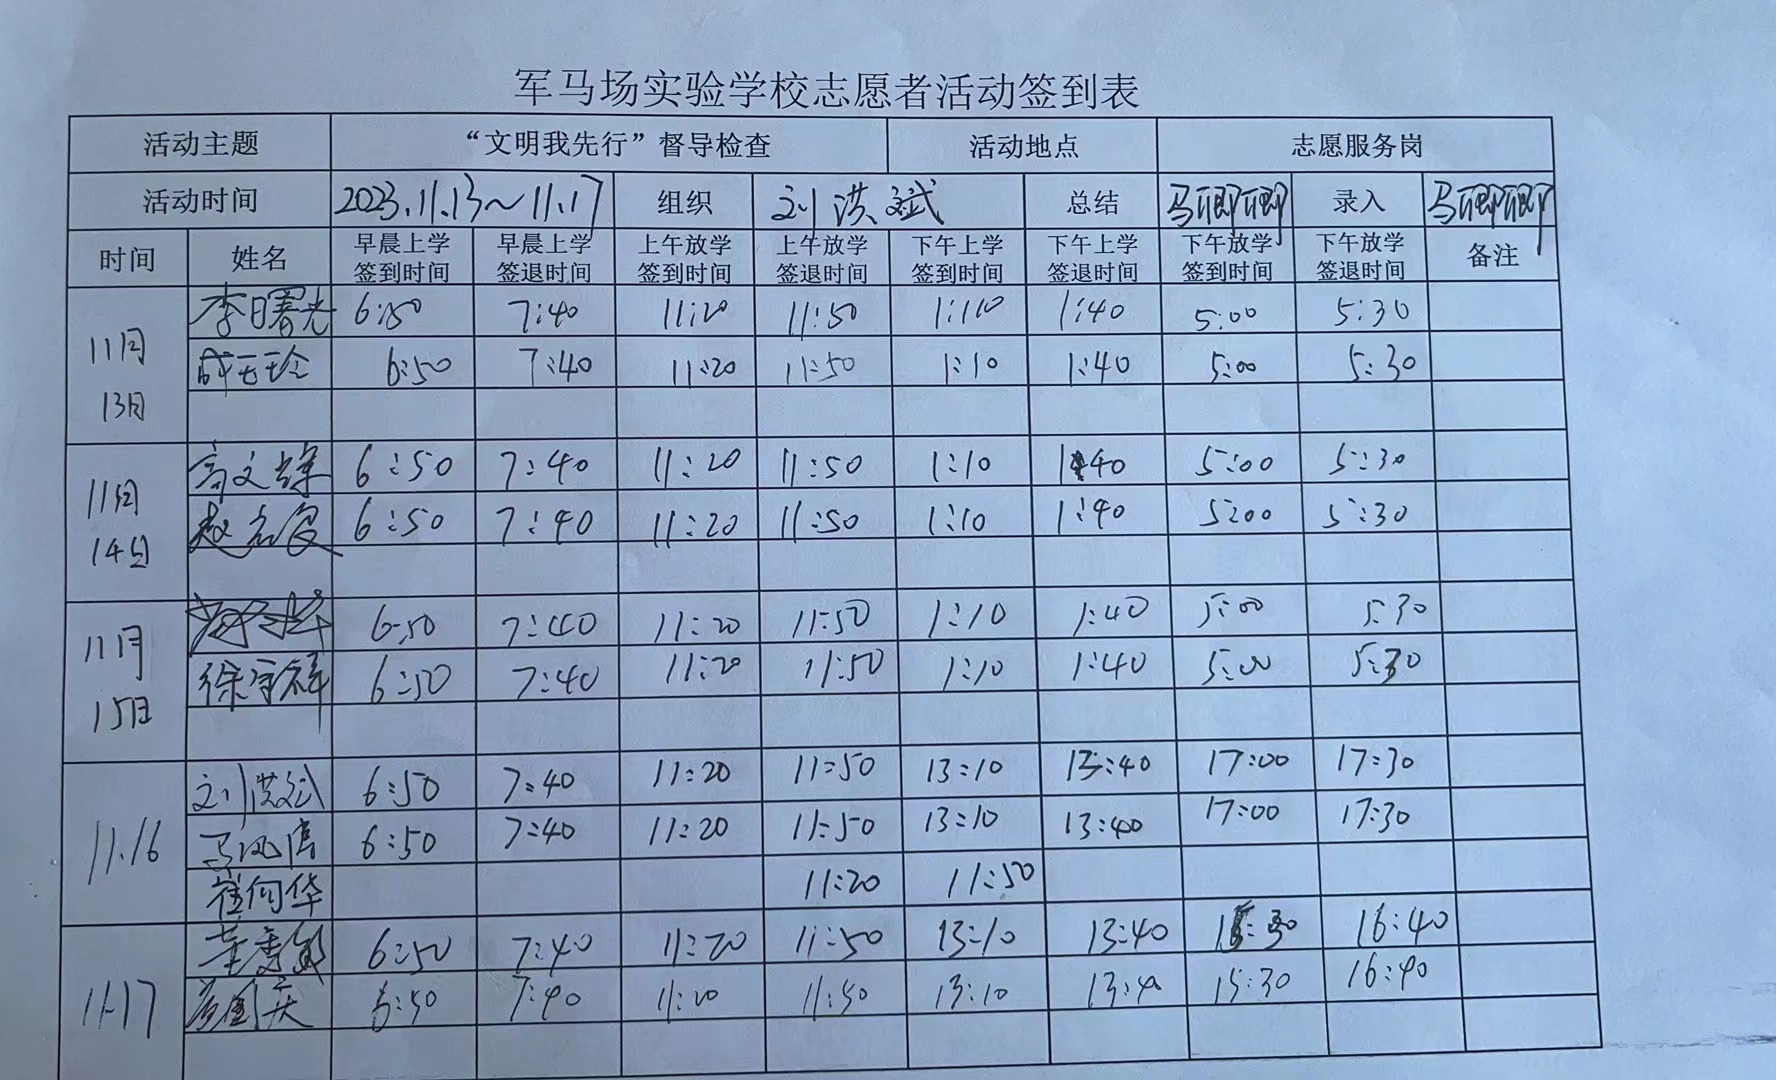 军马场实验学校志愿者活动签到表
活动主题 “文明我先行”督导检查 活动地点 志愿服务岗
活动时间 2023.11.13～11.17 组织 刘洪斌 总结 马 录入 马
时间 姓名 早晨上学签到时间 早晨上学签退时间 上午放学签到时间 上午放学签退时间 下午上学签到时间 下午上学签退时间 下午放学签到时间 下午放学签退时间 备注
11月13日 李曙光 6:50 7:40 11:20 11:50 1:10 1:40 5:00 5:30
6:50 7:40 11:20 11:50 1:10 1:40 5:00 5:30
11月14日 高文峰 6:50 7:40 11:20 11:50 1:10 1:40 5:00 5:30
赵 6:50 7:40 11:20 11:50 1:10 1:40 5:00 5:30
11月15日 6:50 7:40 11:20 11:50 1:10 1:40 5:00 5:30
徐守祥 6:50 7:40 11:20 11:50 1:10 1:40 5:00 5:30
11.16 刘洪斌 6:50 7:40 11:20 11:50 13:10 13:40 17:00 17:30
马 6:50 7:40 11:20 11:50 13:10 13:40 17:00 17:30
崔向华 11:20 11:50
11.17 6:50 7:40 11:20 11:50 13:10 13:40 15:30 16:40
6:50 7:40 11:20 11:50 13:10 13:40 15:30 16:40